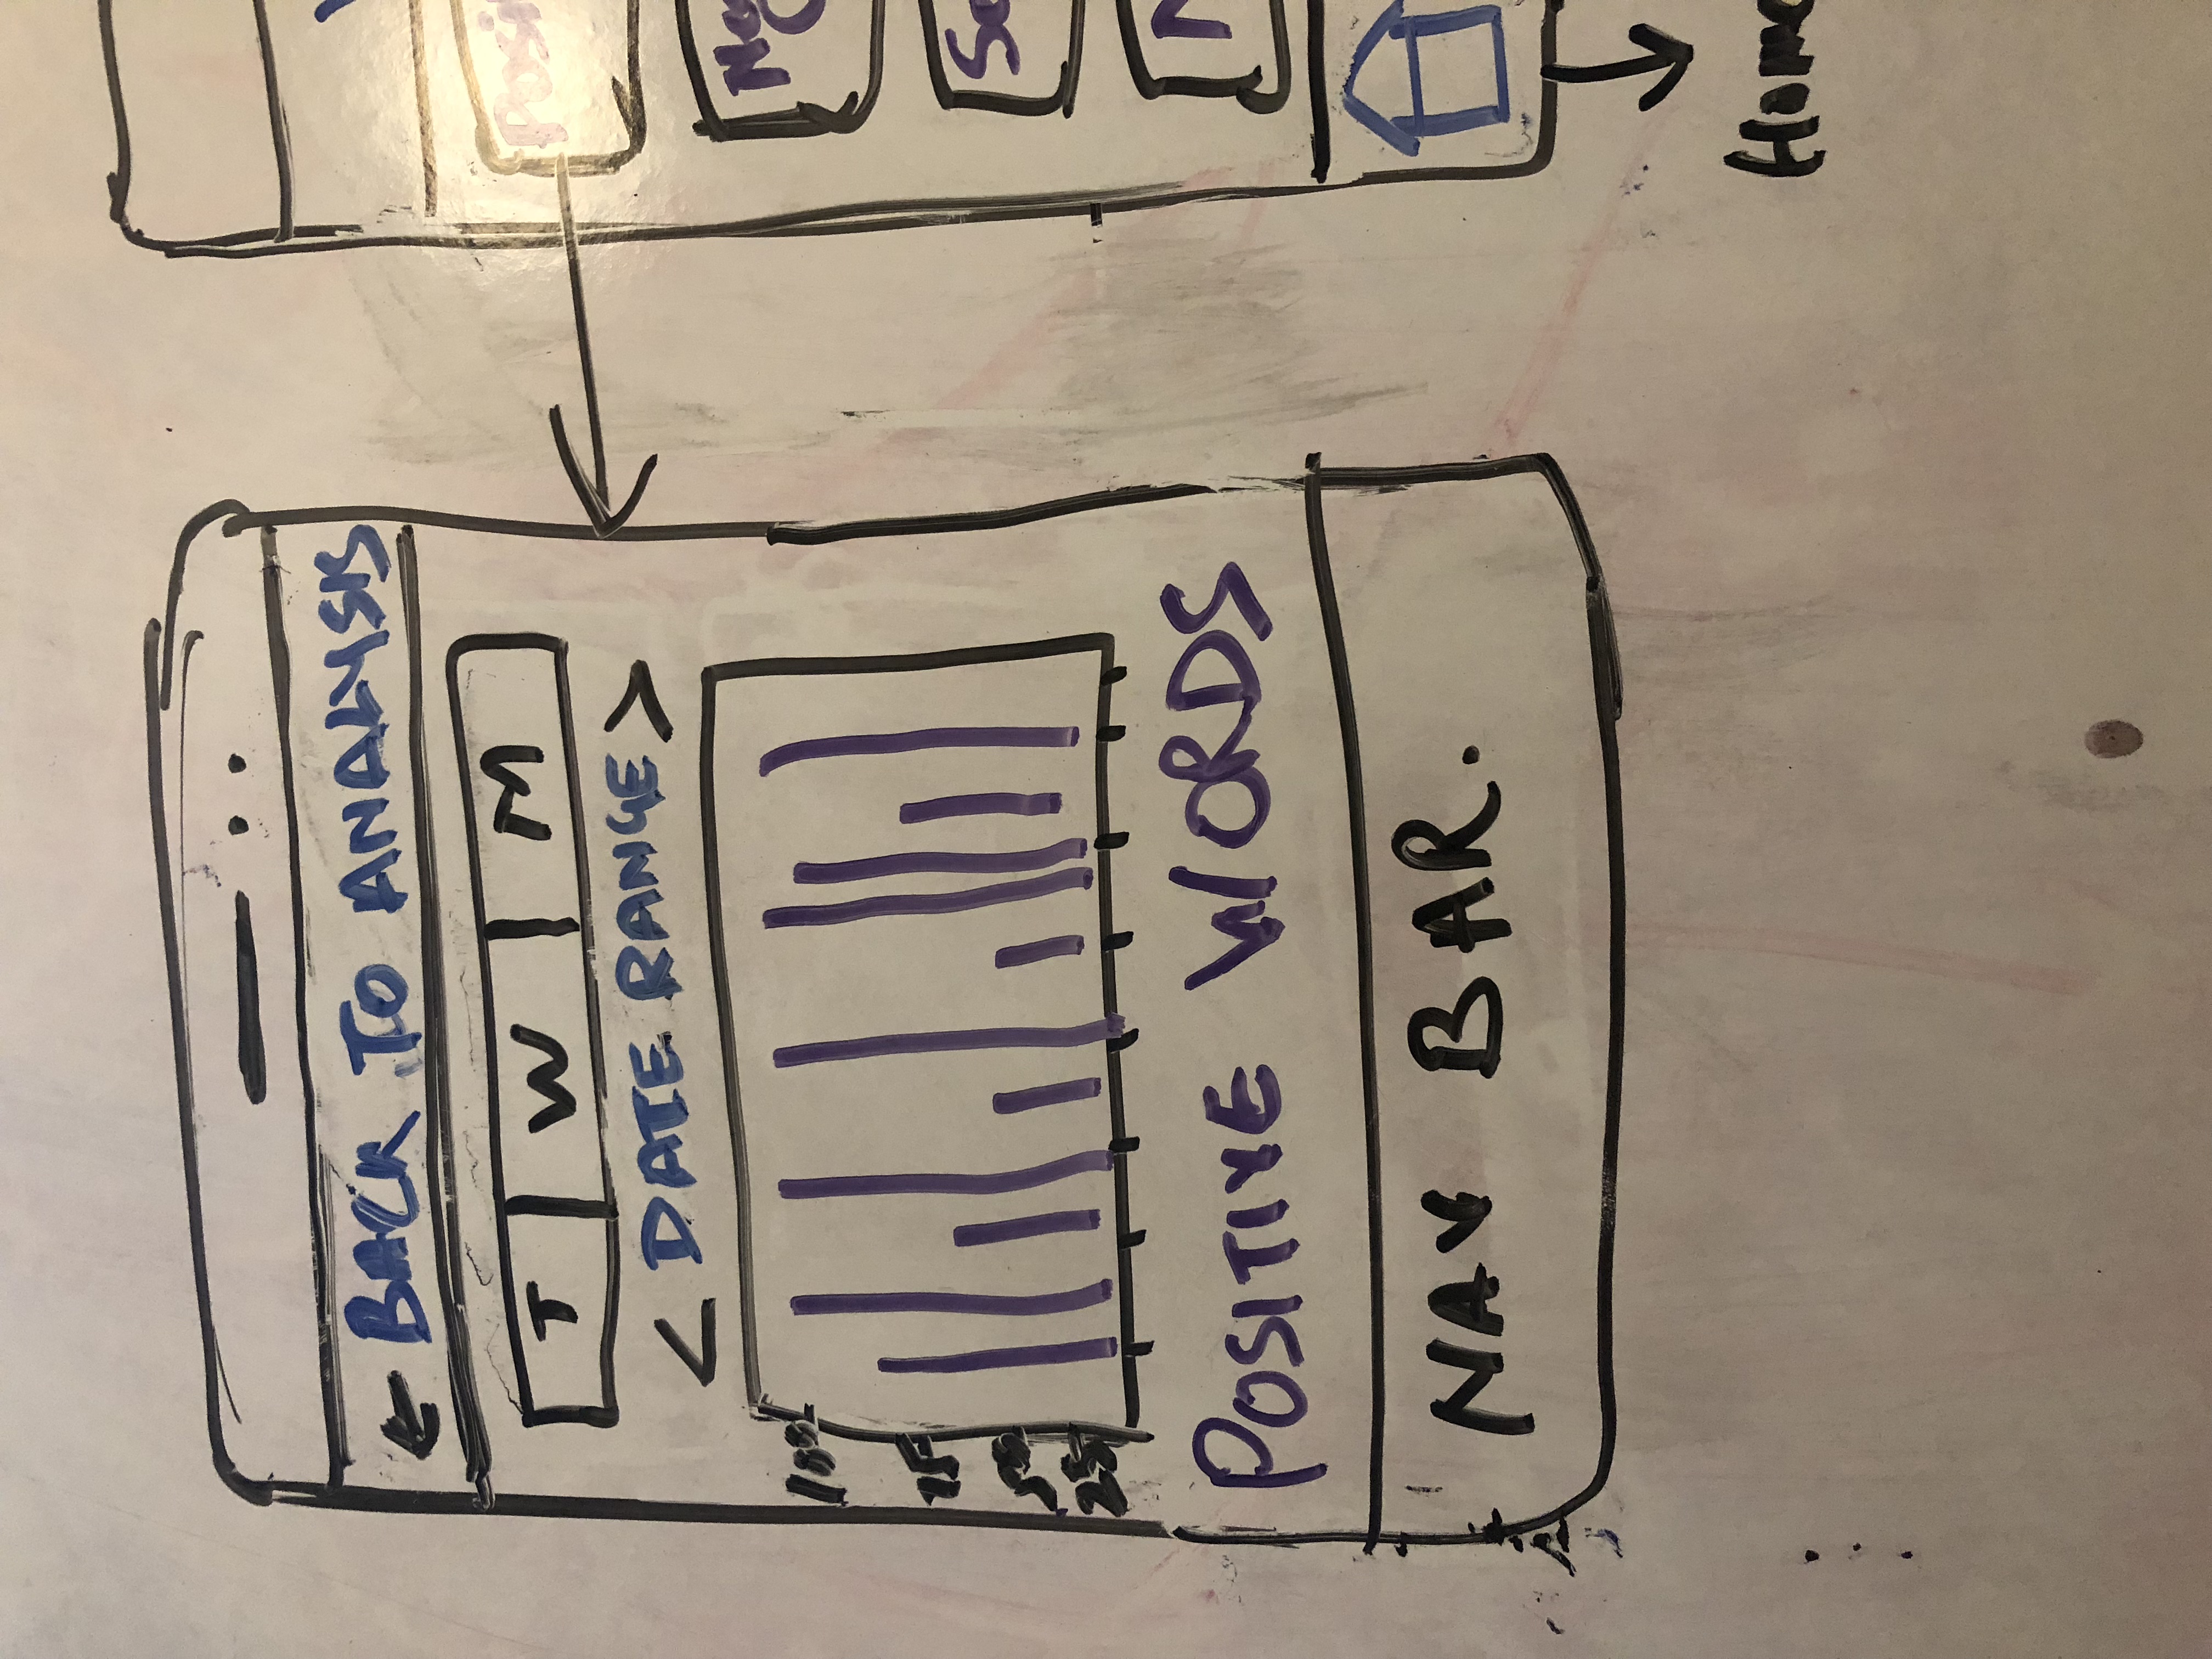 ← BACK TO ANALYSIS
T W M
< DATE RANGE >
100
75
50
25
POSITIVE WORDS
NAV BAR.
Posi
So
Home